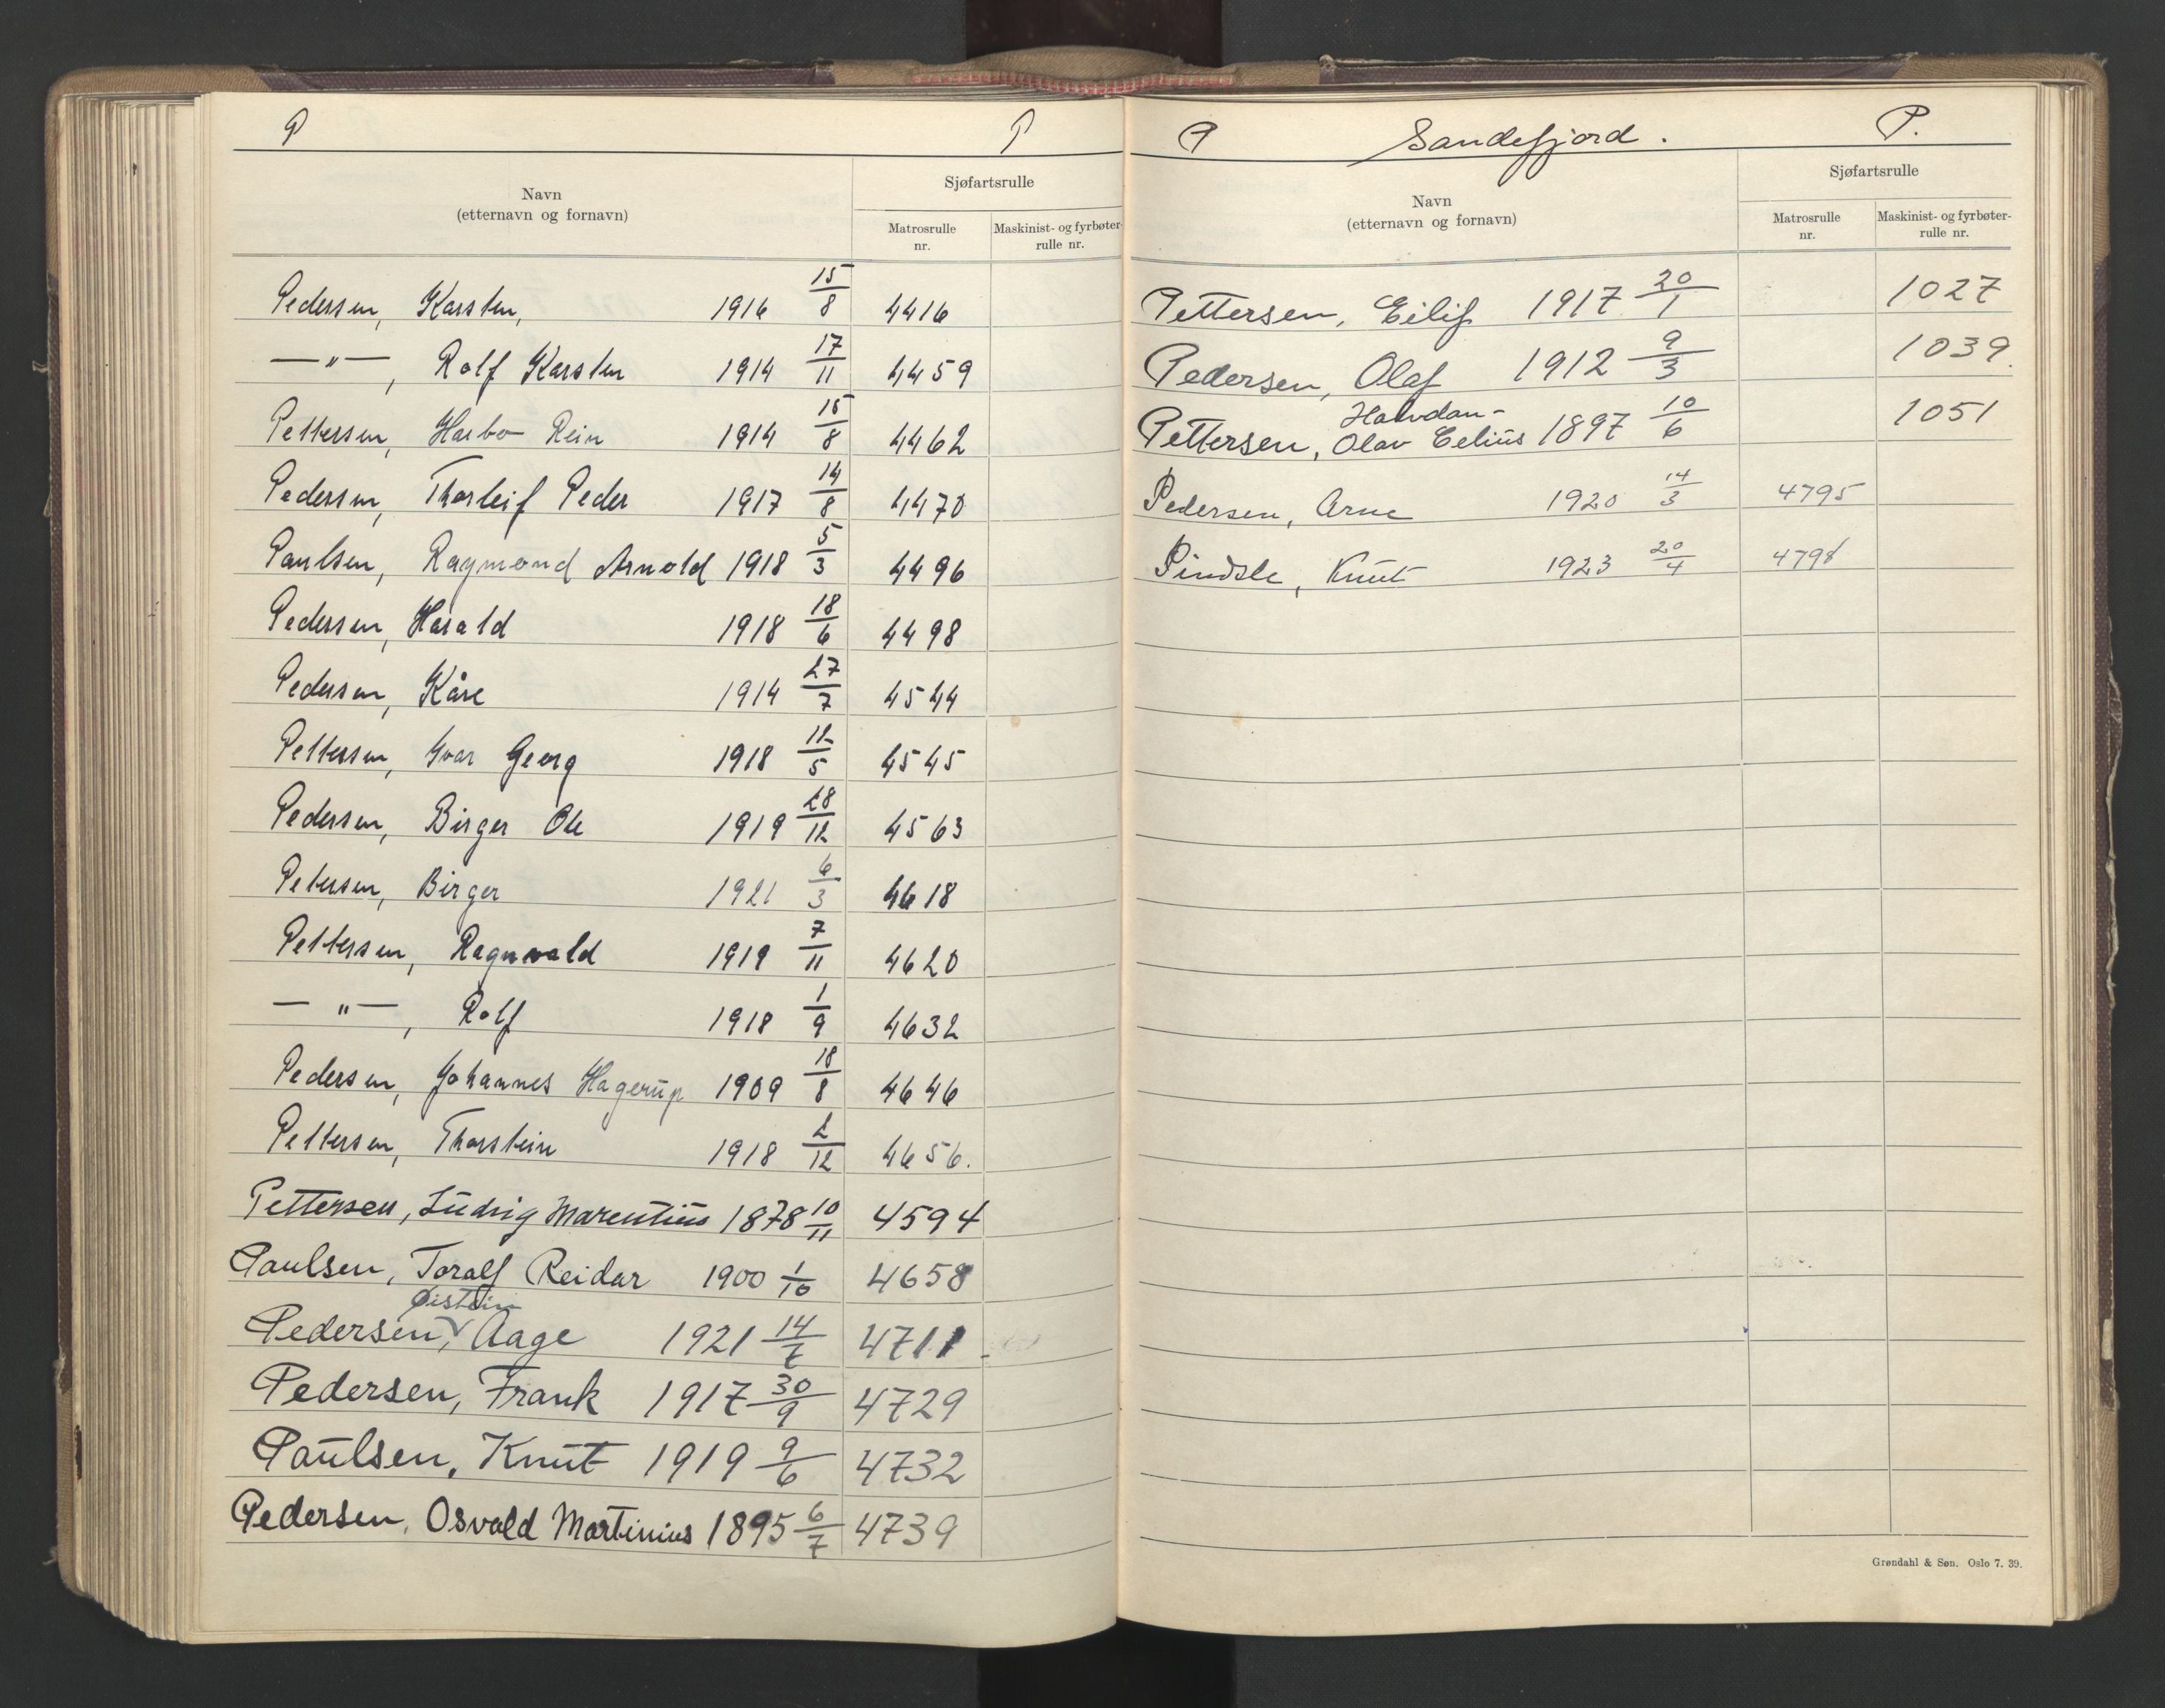 P P
Navn
(etternavn og fornavn)
Sjøfartsrulle
Matrosrulle
nr.
Maskinist- og fyrbøter-
rulle nr.
Pedersen, Karsten, 1916 15/8 4416
—"—, Rolf Karsten 1914 17/11 4459
Pettersen, Harbo Rein 1914 15/8 4462
Pedersen, Thorleif Peder 1917 14/8 4470
Paulsen, Raymond Arnold 1918 5/3 4496
Pedersen, Harald 1918 18/6 4498
Pedersen, Kåre 1914 27/7 4544
Pettersen, Ivar Georg 1918 12/5 4545
Pedersen, Birger Ole 1919 28/12 4563
Petersen, Birger 1921 6/3 4618
Pettersen, Ragnvald 1919 7/11 4620
—"—, Rolf 1918 1/9 4632
Pedersen, Johannes Hagerup 1909 18/8 4646
Pettersen, Thorstein 1918 2/12 4656.
Pettersen, Ludvig Marentius 1878 10/11 4594
Paulsen, Toralf Reidar 1900 1/10 4658
Øistein
Pedersen, Aage 1921 14/7 4711
Pedersen, Frank 1917 30/9 4729
Paulsen, Knut 1919 9/6 4732
Pedersen, Osvald Martinius 1895 6/7 4739
P Sandefjord. P.
Navn
(etternavn og fornavn)
Sjøfartsrulle
Matrosrulle
nr.
Maskinist- og fyrbøter-
rulle nr.
Pettersen, Eilif 1917 20/1 1027
Pedersen, Olaf 1912 9/3 1039.
Halvdan-
Pettersen, Olav Celius 1897 10/6 1051
Pedersen, Arne 1920 14/3 4795
Pindsle, Knut 1923 20/4 4798
Grøndahl & Søn. Oslo 7. 39.